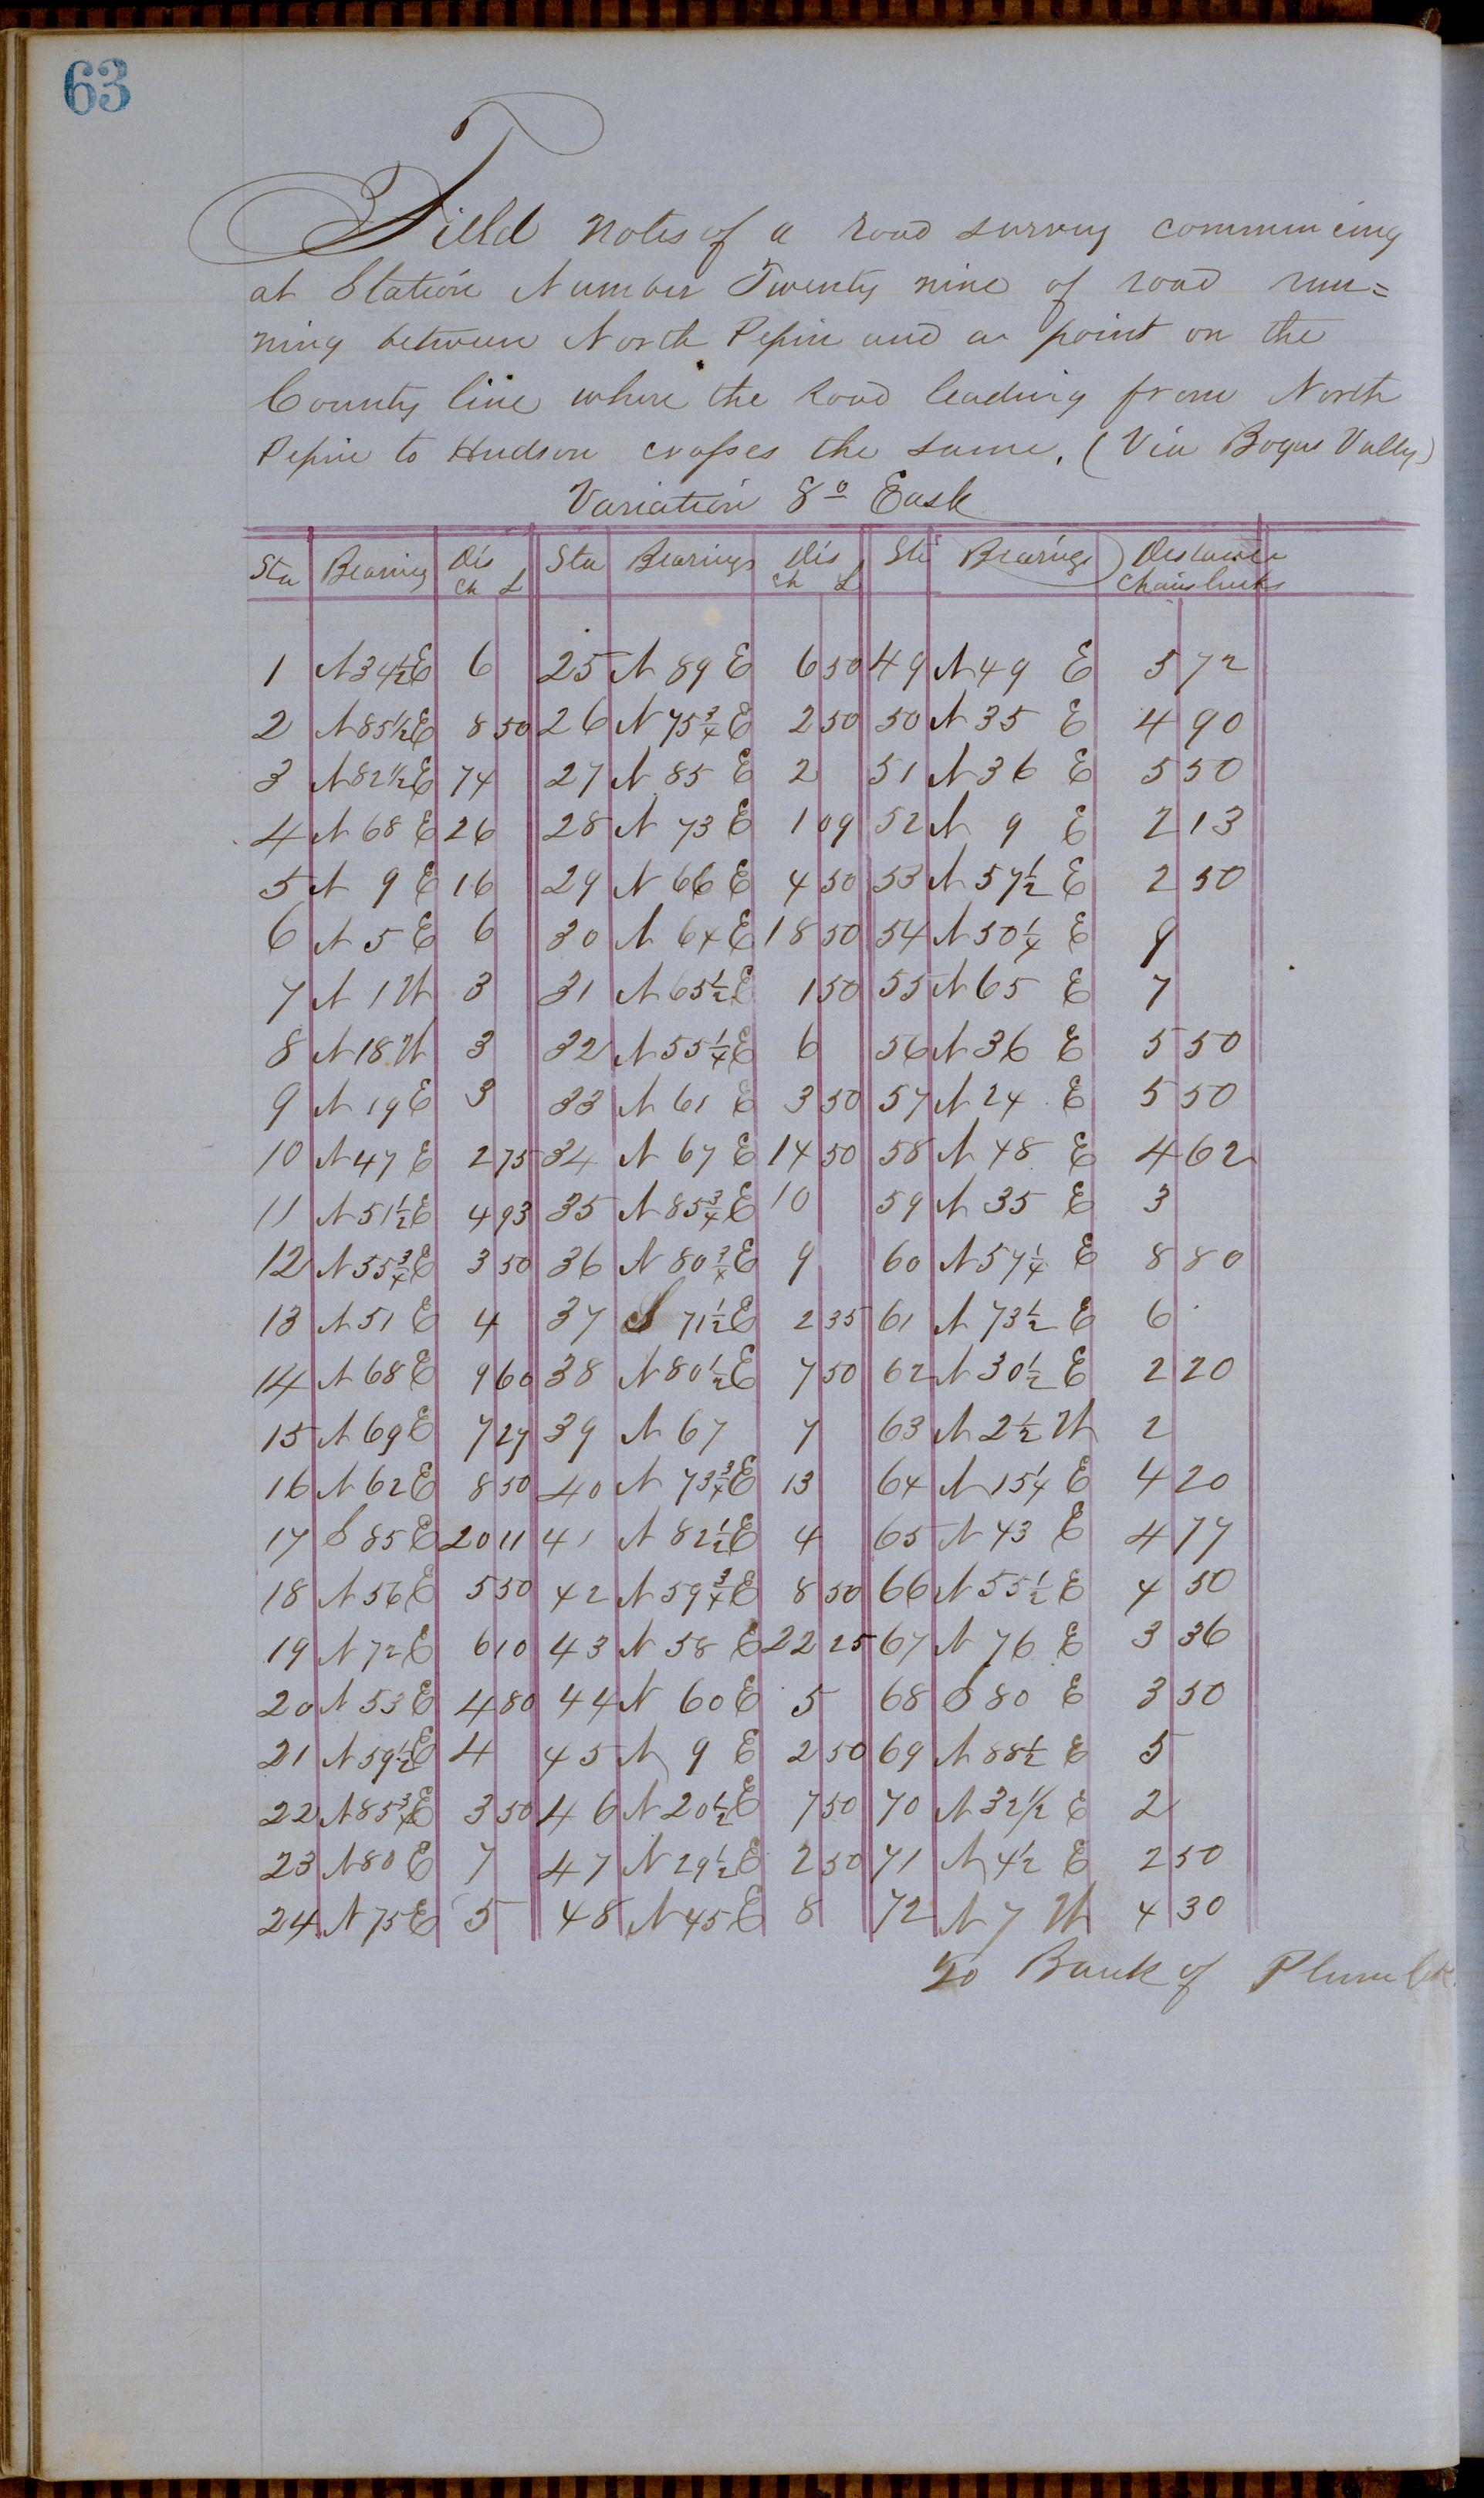 63
Field notes of a road survey commencing
at Station Number Twenty nine of road run=
ning between North Pepin and a point on the
County line where the Road leading from North
Pepin to Hudson crosses the same. (Via Bogus Vally)
Variation 8° East
Sta Bearing Dis Ch L Sta Bearings Dis Ch L Sta Bearings Distance Chains links
1 N 34½ E 6 25 N 89 E 6 50 49 N 49 E 5 72
2 N 85½ E 8 50 26 N 75¾ E 2 50 50 N 35 E 4 90
3 N 82½ E 74 27 N 85 E 2 51 N 36 E 5 50
4 N 68 E 26 28 N 73 E 1 09 52 N 9 E 2 13
5 N 9 E 16 29 N 66 E 4 50 53 N 57½ E 2 50
6 N 5 E 6 30 N 64 E 18 50 54 N 50¼ E 9
7 N 1 W 3 31 N 65½ E 1 50 55 N 65 E 7
8 N 18 W 3 32 N 55¼ E 6 56 N 36 E 5 50
9 N 19 E 3 33 N 61 E 3 50 57 N 24 E 5 50
10 N 47 E 2 75 34 N 67 E 14 50 58 N 48 E 4 62
11 N 51½ E 4 93 35 N 85¾ E 10 59 N 35 E 3
12 N 55¾ E 3 50 36 N 80¾ E 9 60 N 57¼ E 8 80
13 N 51 E 4 37 S 71½ E 2 35 61 N 73½ E 6
14 N 68 E 9 60 38 N 80½ E 7 50 62 N 30½ E 2 20
15 N 69 E 7 27 39 N 67 7 63 N 2½ W 2
16 N 62 E 8 50 40 N 73¾ E 13 64 N 15¼ E 4 20
17 S 85 E 20 11 41 N 82½ E 4 65 N 43 E 4 77
18 N 56 E 5 50 42 N 59¾ E 8 50 66 N 55½ E 4 50
19 N 72 E 6 10 43 N 58 E 22 25 67 N 76 E 3 36
20 N 53 E 4 80 44 N 60 E 5 68 S 80 E 3 50
21 N 59½ E 4 45 N 9 E 2 50 69 N 88½ E 5
22 N 85¾ E 3 50 46 N 20½ E 7 50 70 N 32½ E 2
23 N 80 E 7 47 N 29½ E 2 50 71 N 4½ E 2 50
24 N 75 E 5 48 N 45 E 8 72 N 7 W 4 30
To Bank of Plum